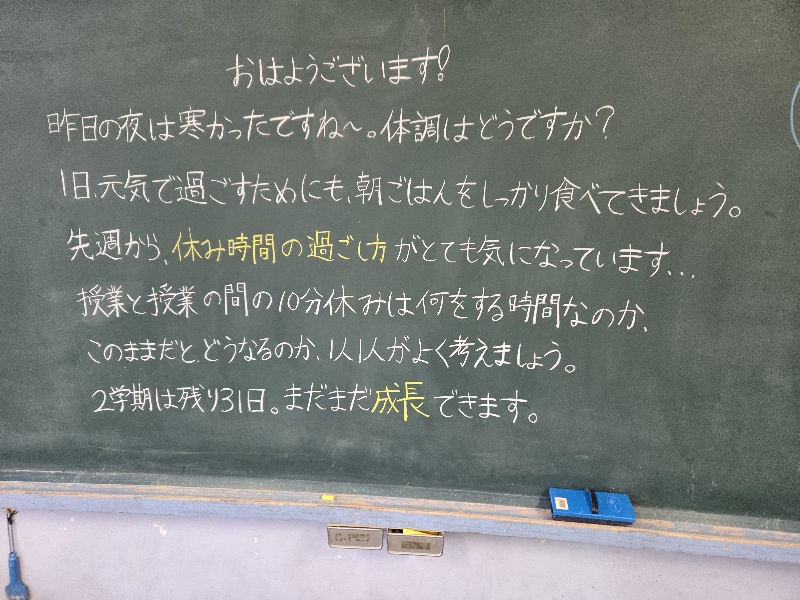 おはようございます!
昨日の夜は寒かったですね〜。体調はどうですか?
1日、元気で過ごすためにも、朝ごはんをしっかり食べてきましょう。
先週から、休み時間の過ごし方がとても気になっています...
授業と授業の間の10分休みは何をする時間なのか、
このままだと、どうなるのか、1人1人がよく考えましょう。
2学期は残り31日。まだまだ成長できます。